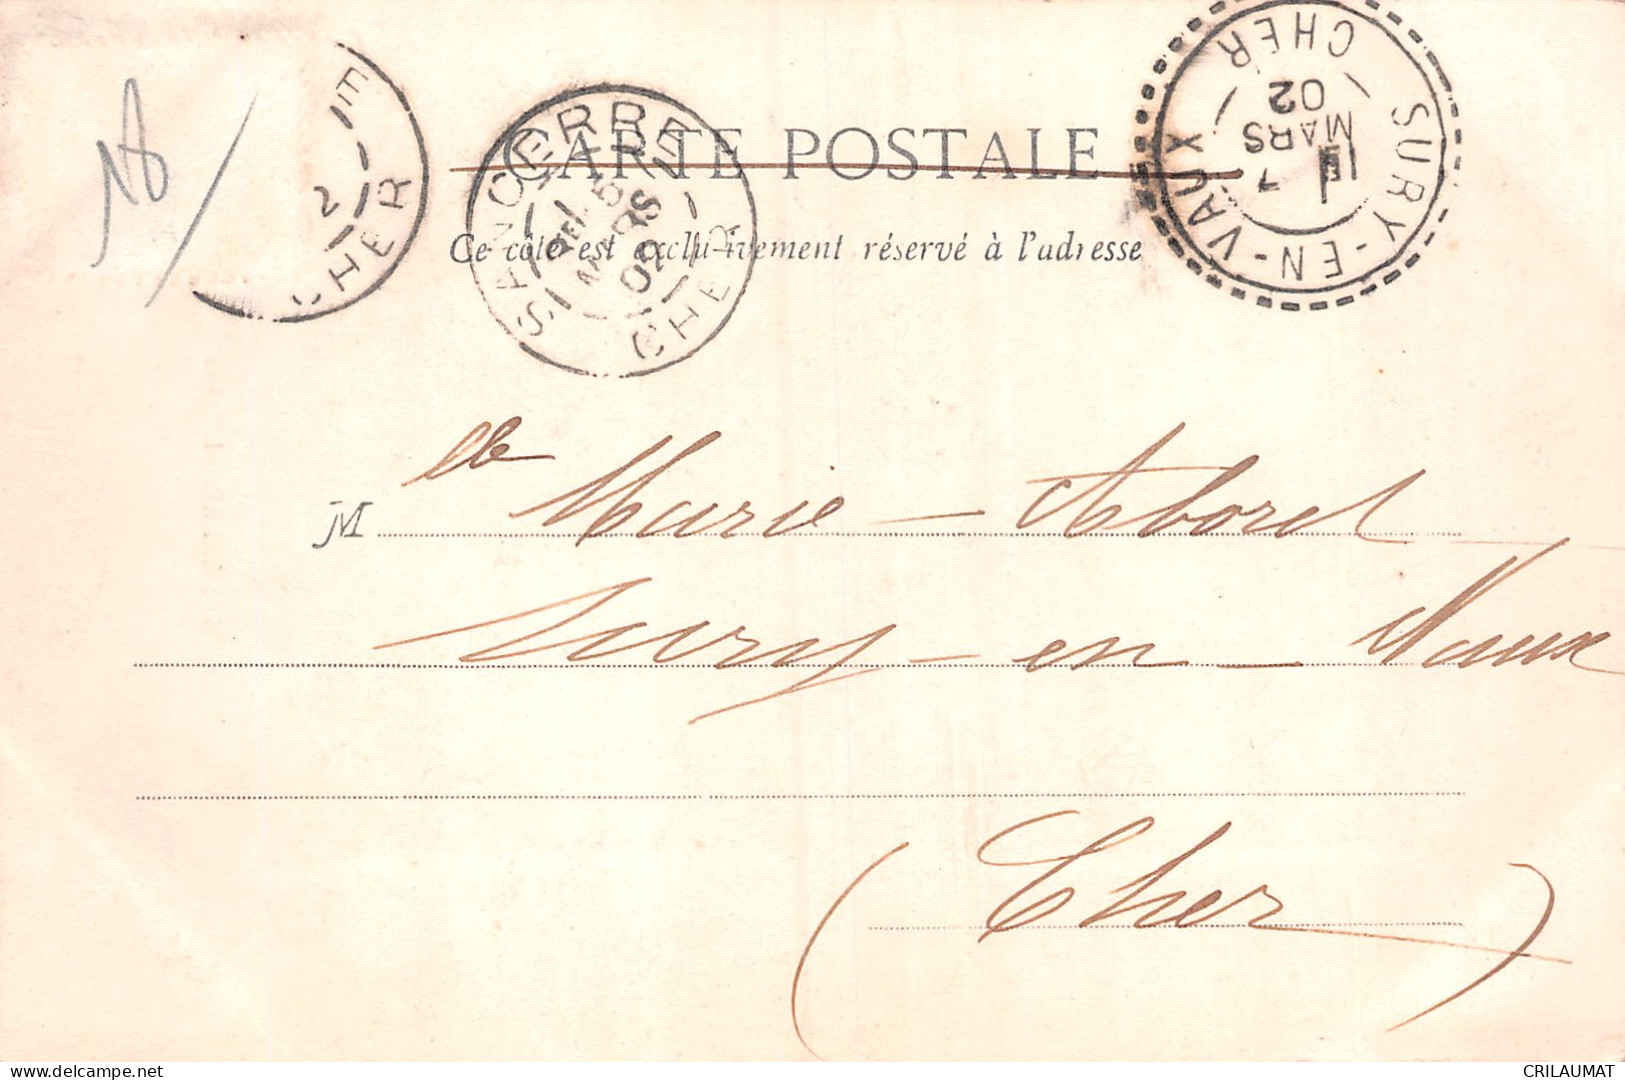 CARTE POSTALE
Ce côté est exclusivement réservé à l'adresse
E
2
CHER
SANCERRE
5
MARS
02
CHER
SURY-EN-VAUX
7
MARS
02
CHER
M lle Marie - Aborel
Sury - en - Vaux
(Cher)
www.delcampe.net
CRILAUMAT